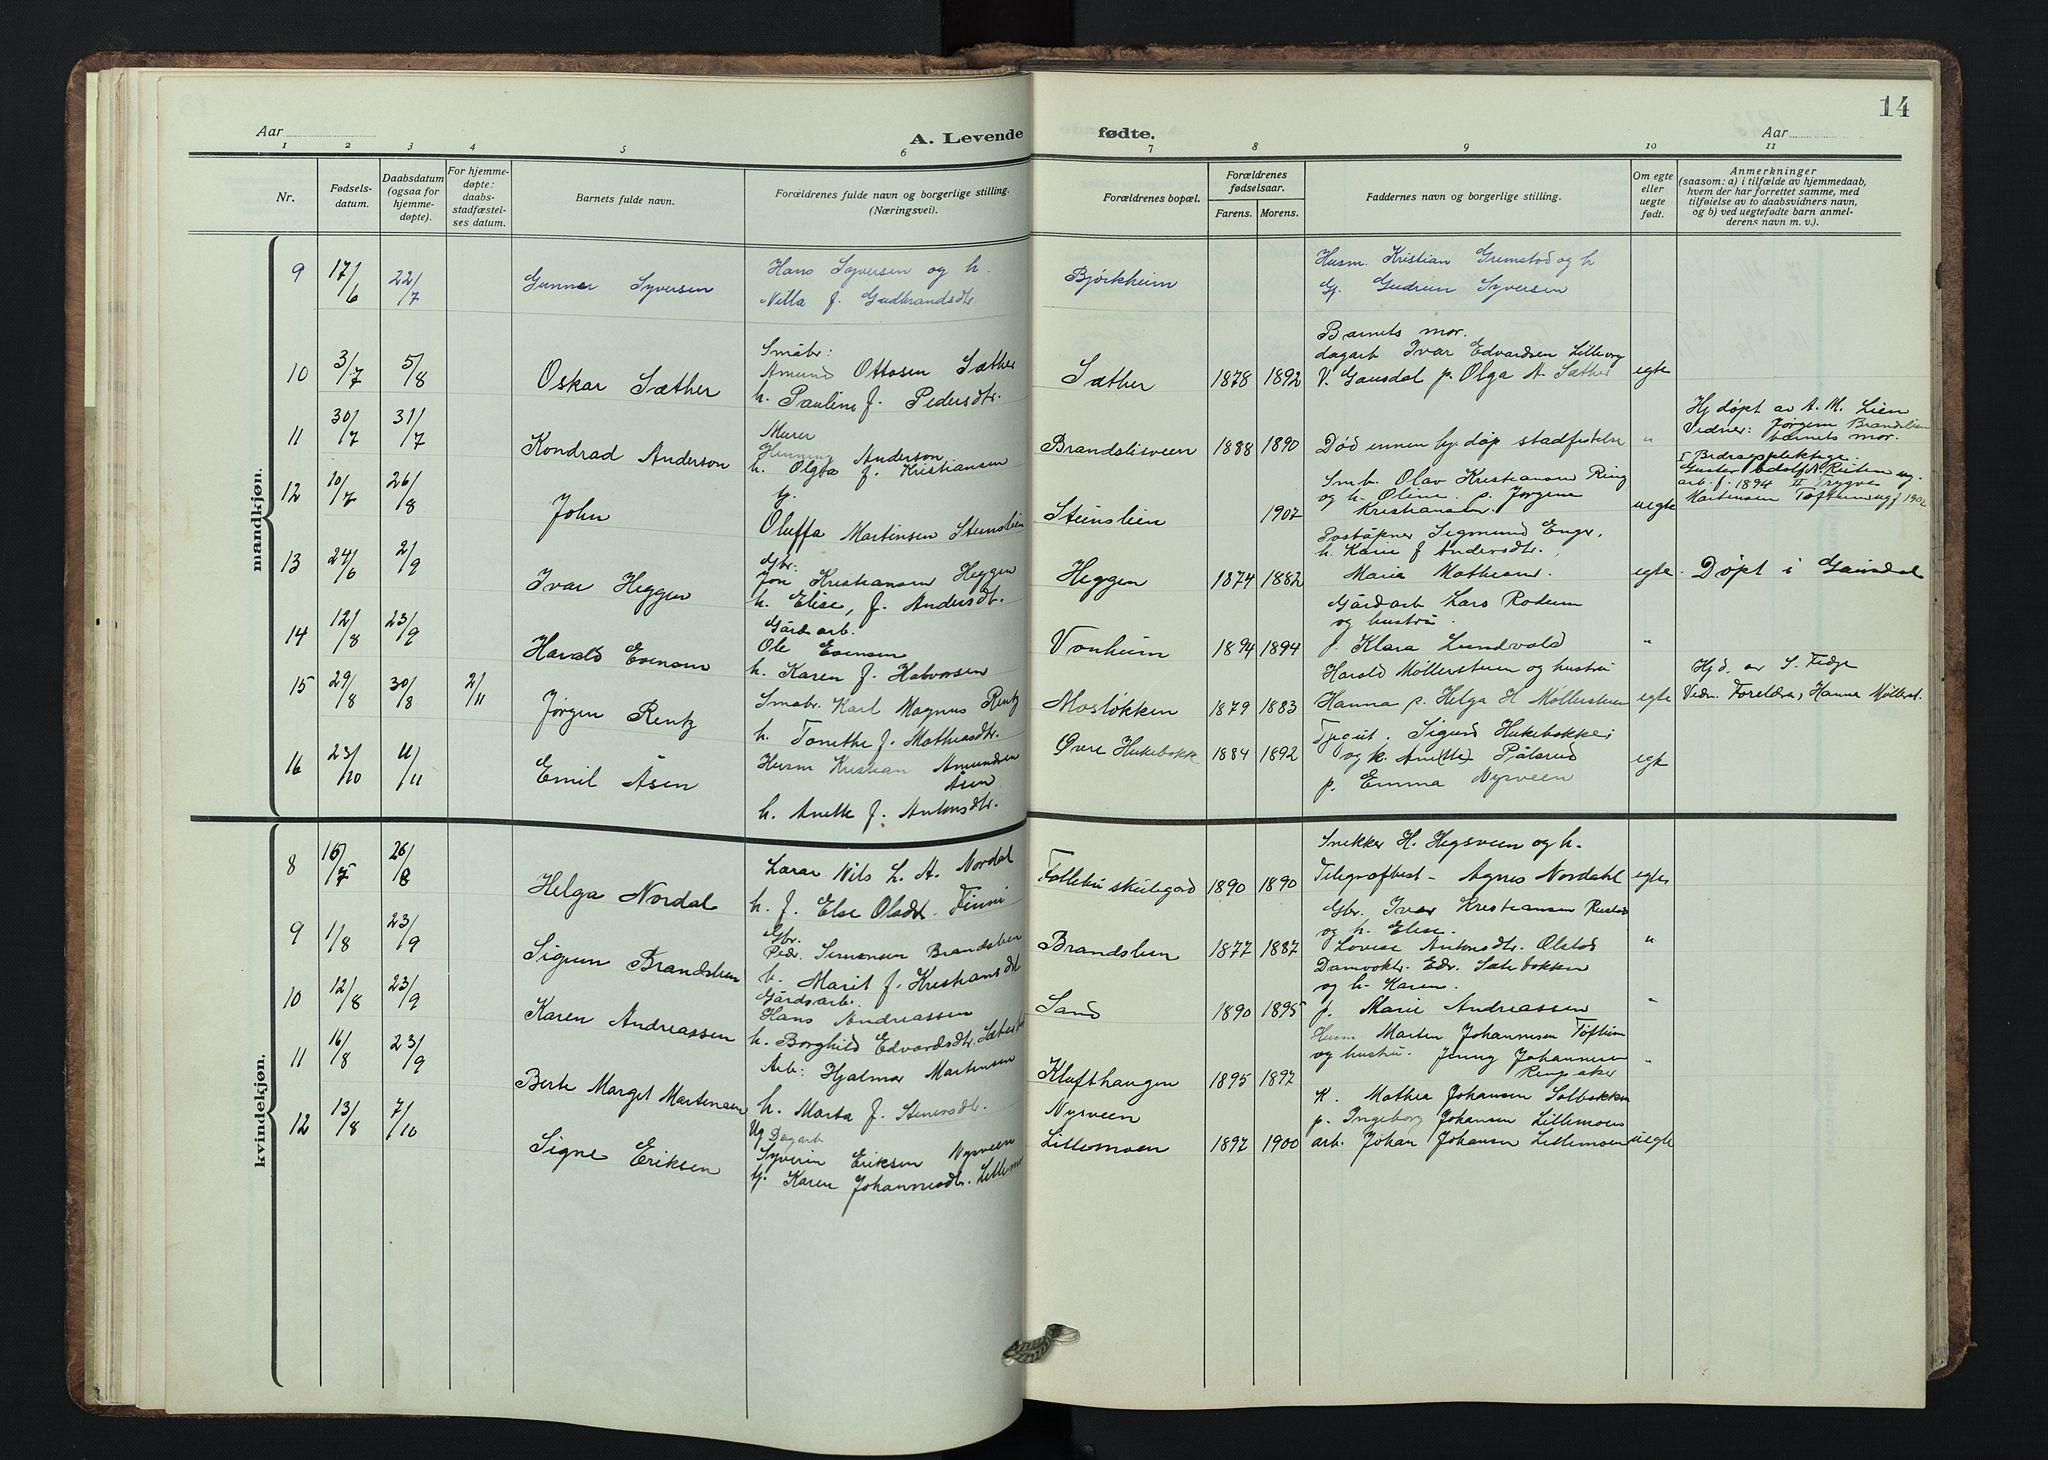 14
Aar
A. Levende fødte.
Aar
1 2 3 4 5 6 7 8 9 10 11
Nr.
Fødsels-
datum.
Daabsdatum
(ogsaa for
hjemme-
døpte).
For hjemme-
døpte:
daabs-
stadfæstel-
ses datum.
Barnets fulde navn.
Forældrenes fulde navn og borgerlige stilling.
(Næringsvei).
Forældrenes bopæl.
Forældrenes
fødselsaar.
Farens. Morens.
Faddernes navn og borgerlige stilling.
Om egte
eller
uegte
født.
Anmerkninger
(saasom: a) i tilfælde av hjemmedaab,
hvem der har forrettet samme, med
tilføielse av to daabsvidners navn,
og b) ved uegtefødte barn anmel-
derens navn m. v.).
mandkjøn.
9 17/6 22/7 Gunnar Syversen
Hans Syversen og h.
f. Gudbrandsdtr
Bjørkheim
Husm. Kristian Gremstad og h
Gj. Gudrun Syversen
10 3/7 5/8 Oskar Sæther
Småbr:
Amund Ottosen Sæther
h. Pauline f. Pedersdtr.
Sæther 1878 1892
Barnets mor.
dagarb Ivar Edvardsen
V. Gausdal p. Olga A. Sæther
egte
11 30/7 31/7 Kondrad Anderson
Murer
Henning Anderson
h. Olga f. Kristiansen
Brandslisveen 1888 1890
Død innen dåp stadfestelse
"
Hj døpt av A. M. Lien
Vidner: Jørgen Brandslien
barnets mor.
12 10/7 26/8 John
Oluffa Martinsen Steinslien
Steinslien 1907
Smb. Olav Kristiansen Ring
og h. Oline. p. Jørgine
Kristiansen.
uegte
I Bidragspliktige:
arb. f. 1894 II Trygve
Martensen
13 24/6 2/9 Ivar Heggen
Gbr:
Jon Kristiansen Heggen
h. Elise, f. Andersdt.
Heggen 1874 1882
Poståpner Sigmund Enge,
h. Karie f Andersdtr.
Marie Mathisen.
egte. Døpt i Gausdal
14 12/8 23/9 Harald Evensen
Gårdsarb.
Ole Evensen
h. Karen f. Halvorsen
Vonheim 1894 1894
Gårdarb Lars Rodum
og hustru.
f. Klara Lundvold
"
15 29/8 30/8 2/11 Jørgen Rentz
Småbr. Karl Magnus Rentz
h. Tonethe f. Mathiasdtr.
Mosløkken 1879 1883
Harald Møllersteen og hustru
Hanna p. Helga H Møllersteen
egte
Hjd. av S. Fedje
Vidn. Foreldra, Hanna Møllerst.
16 23/10 11/11 Emil Åsen
Husm Kristian Amundsen
Åsen
h. Anette f. Antonsdtr.
Øvre Hukebakk 1884 1892
Sigurd Hukebakke;
og h. Pålsrud
p. Emma Nysveen
egte
kvindekjøn.
8 16/7 26/8 Helga Nordal
Lærar Nils L. A. Nordal
h. f. Else Olsdt. Finni
Follebu skulegard 1890 1890
Snekker H. Hegsveen og h.
Telegrafbest - Agnes Nordahl
egte
9 1/8 23/9 Sigrun Brandslien
Gbr.
Peder Simensen Brandslien
h. Marit f. Kristiansdt
Brandslien 1877 1887
Gbr. Ivar Kristiansen Rustad
og h. Elise.
Lovise Antonsdtr. Olstad
"
10 12/8 23/9 Karen Andreassen
Gårdsarb.
Hans Andreassen
h. Borghild Edvardsdtr.
Sand 1890 1895
Damvokter. Edv. Sæterbakken
og h. Karen.
f. Marie Andreassen
"
11 16/8 23/9 Berte Marget Martensen
Arb: Hjalmar Martensen
h. Marta f. Steinsdtr.
Klufthaugen 1895 1897
Husm Marten Johannesen Toftum
og hustru. Jenny Johannesen
Ringsaker
"
12 13/8 7/10 Signe Eriksen
Ug Dagarb
Syverin Eriksen Nysveen
Gj. Karen Johannesdt. Lillemo
Nysveen
Lillemoen 1897 1900
K. Mathea Johansen Solbakken
p. Ingeborg Johansen Lillemoen
arb. Johan Johansen Lillemoen
uegte